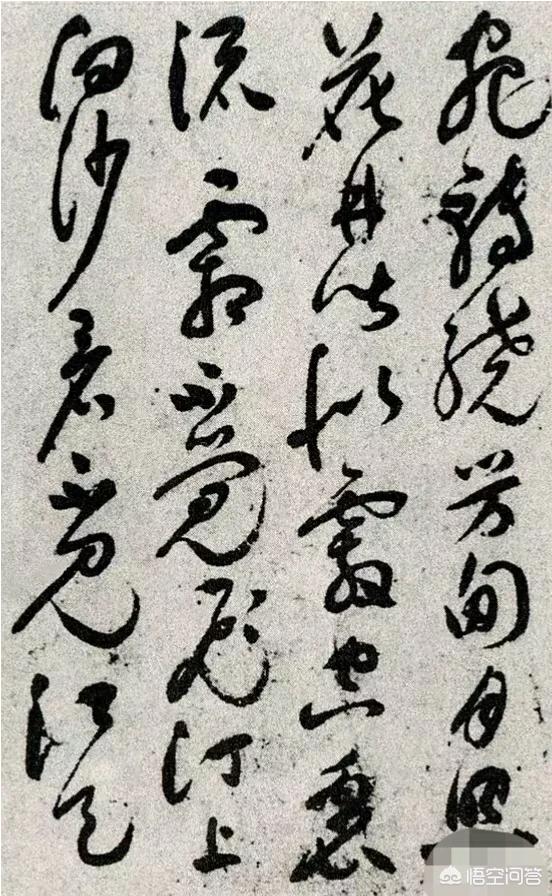 宛轉繞芳甸月照
花林皆似霰空裏
流霜不覺飛汀上
白沙看不見江天
悟空问答